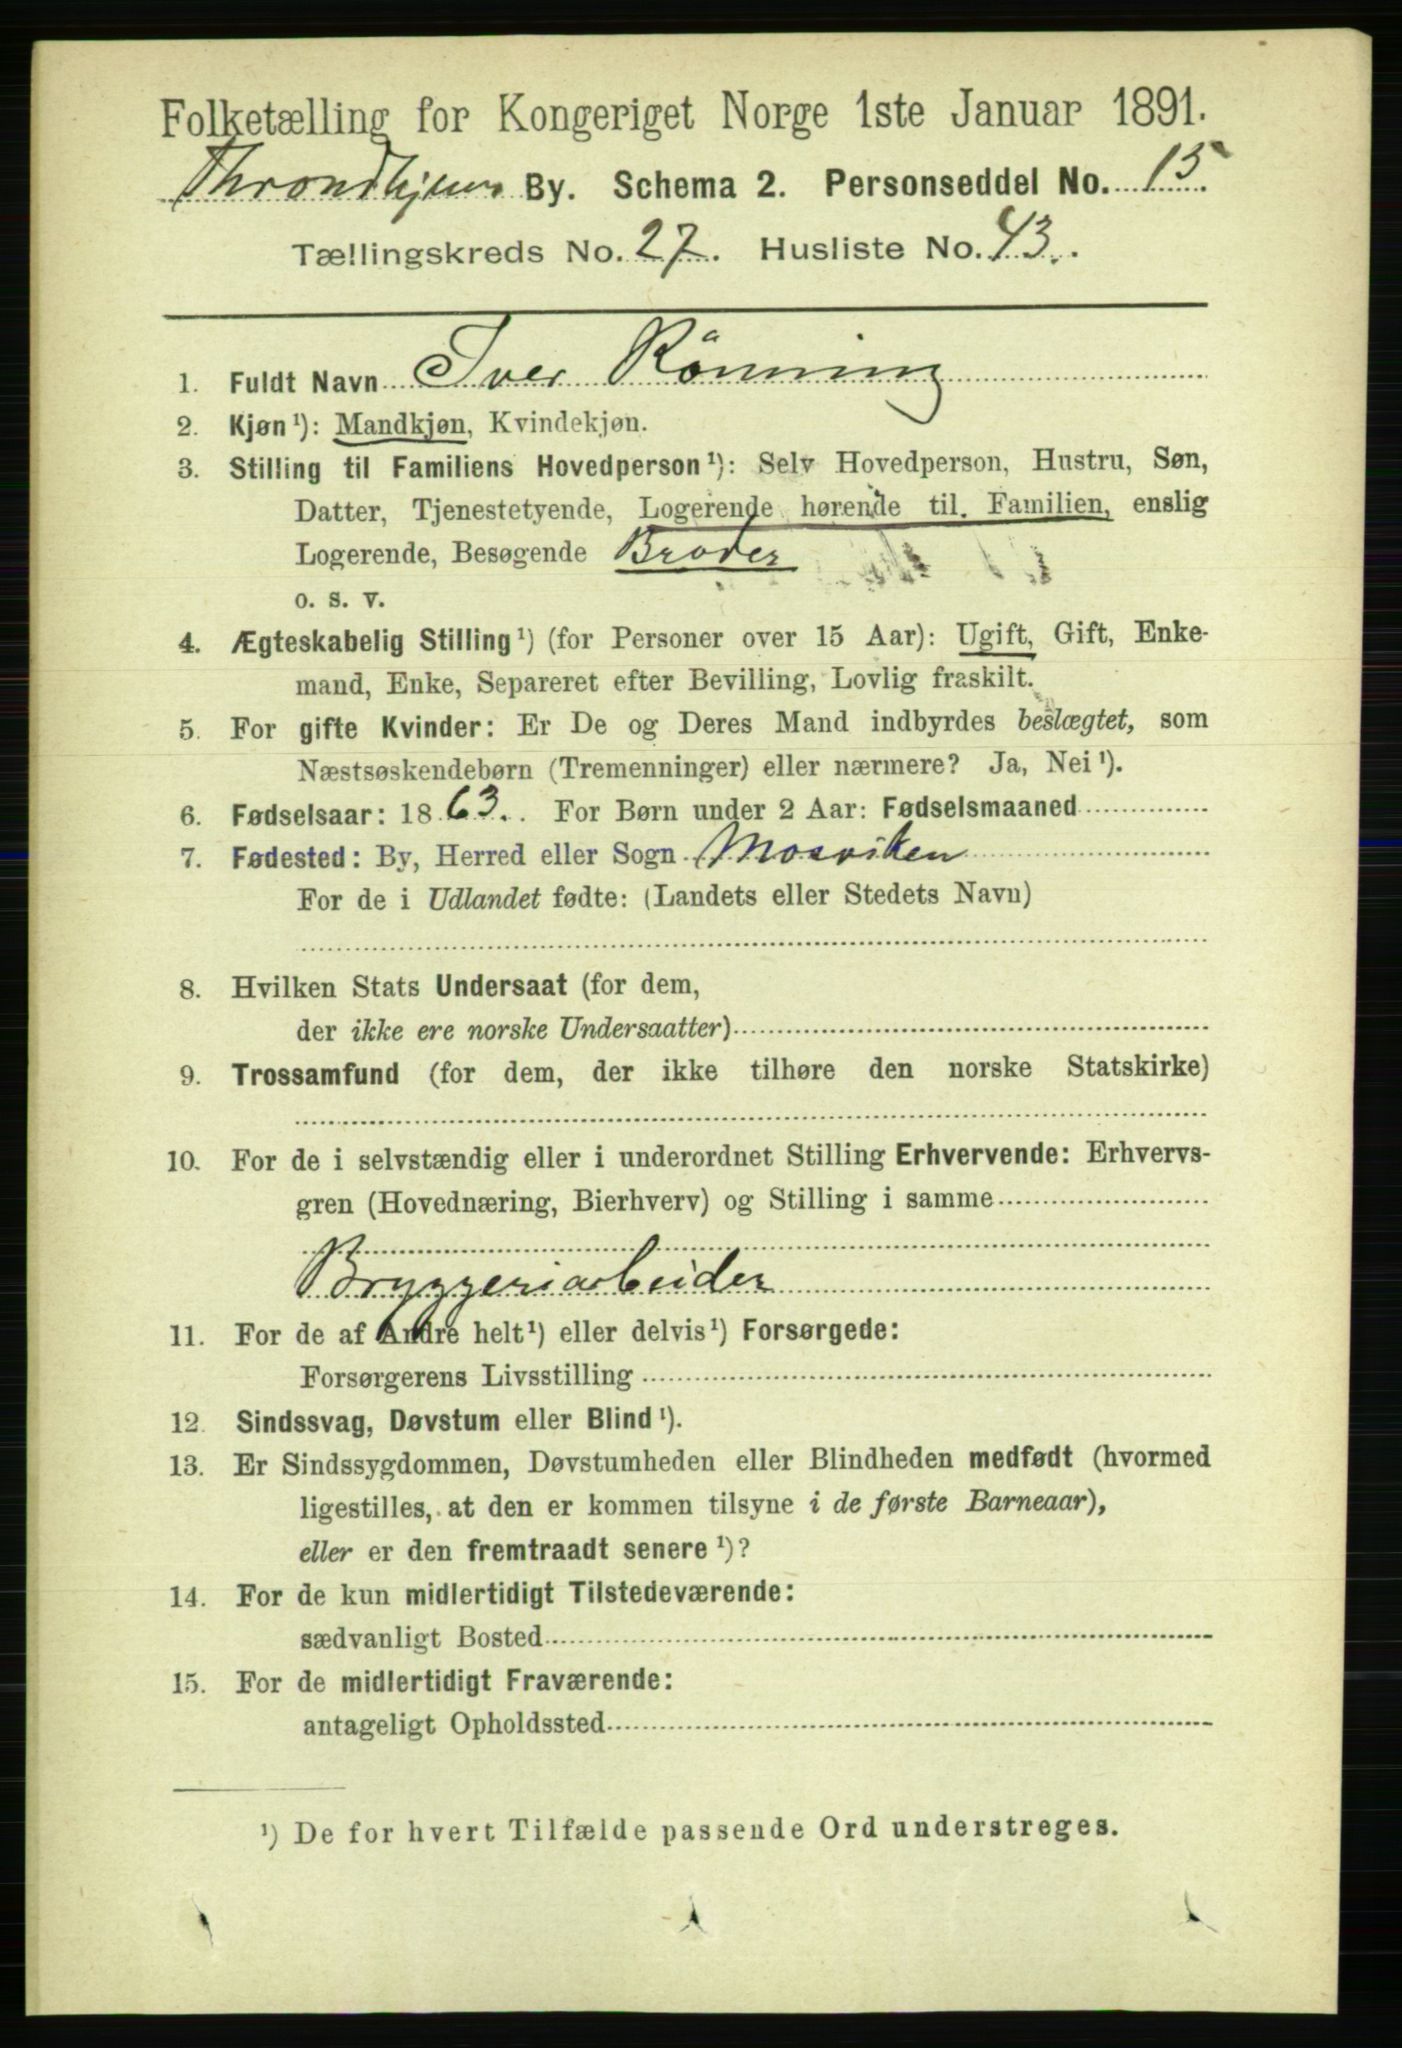 Folketælling for Kongeriget Norge 1ste Januar 1891.
Throndhjems By. Schema 2. Personseddel No. 15.
Tællingskreds No. 27. Husliste No. 43.
1. Fuldt Navn Iver Rönning
2. Kjøn¹): Mandkjøn, Kvindekjøn.
3. Stilling til Familiens Hovedperson¹): Selv Hovedperson, Hustru, Søn,
Datter, Tjenestetyende, Logerende hørende til Familien, enslig
Logerende, Besøgende Broder
o. s. v.
4. Ægteskabelig Stilling¹) (for Personer over 15 Aar): Ugift, Gift, Enke-
mand, Enke, Separeret efter Bevilling, Lovlig fraskilt.
5. For gifte Kvinder: Er De og Deres Mand indbyrdes beslægtet, som
Næstsøskendebørn (Tremenninger) eller nærmere? Ja, Nei¹).
6. Fødselsaar: 1863. For Børn under 2 Aar: Fødselsmaaned
7. Fødested: By, Herred eller Sogn Mosviken
For de i Udlandet fødte: (Landets eller Stedets Navn)
8. Hvilken Stats Undersaat (for dem,
der ikke ere norske Undersaatter)
9. Trossamfund (for dem, der ikke tilhøre den norske Statskirke)
10. For de i selvstændig eller i underordnet Stilling Erhvervende: Erhvervs-
gren (Hovednæring, Bierhverv) og Stilling i samme
Bryggeriarbeider
11. For de af Andre helt¹) eller delvis¹) Forsørgede:
Forsørgerens Livsstilling
12. Sindssvag, Døvstum eller Blind¹).
13. Er Sindssygdommen, Døvstumheden eller Blindheden medfødt (hvormed
ligestilles, at den er kommen tilsyne i de første Barneaar),
eller er den fremtraadt senere¹)?
14. For de kun midlertidigt Tilstedeværende:
sædvanligt Bosted
15. For de midlertidigt Fraværende:
antageligt Opholdssted
¹) De for hvert Tilfælde passende Ord understreges.